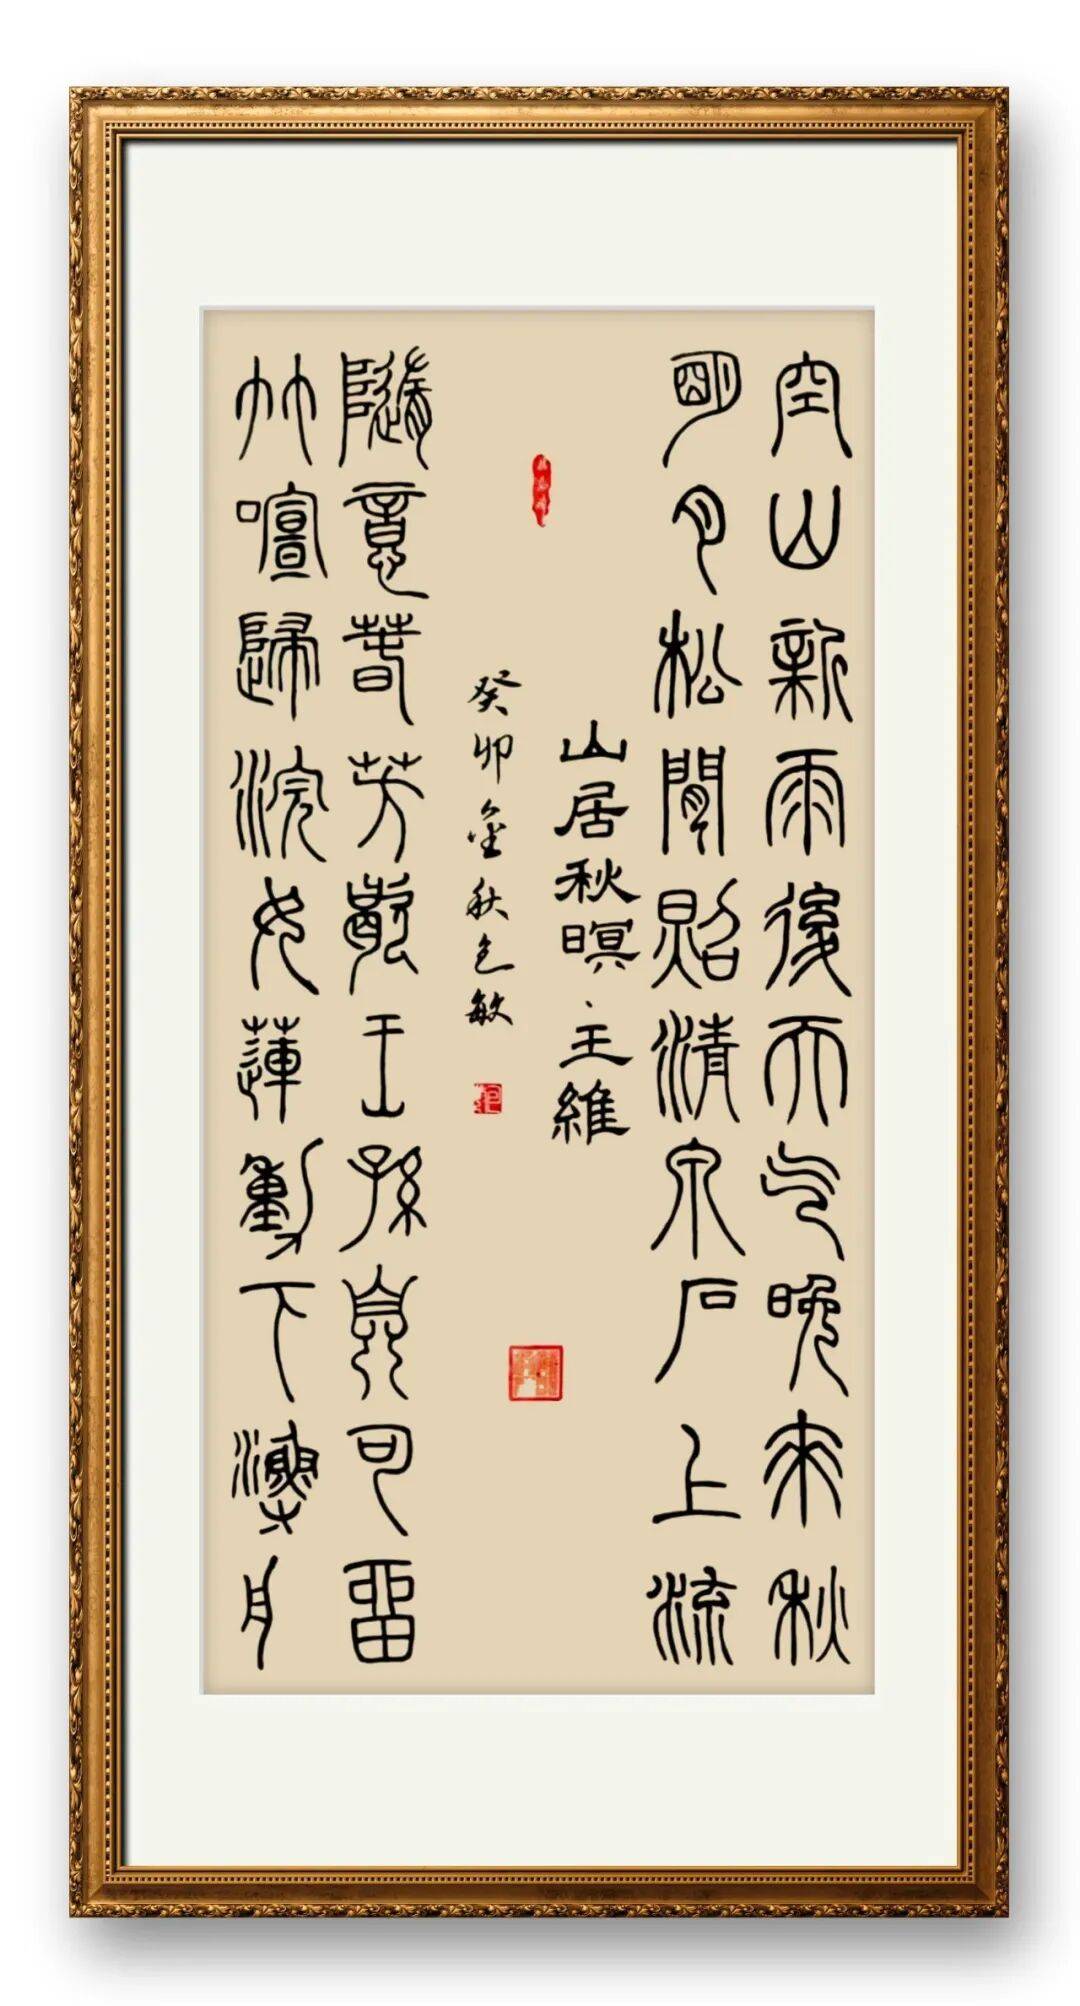 空山新雨後天气晚來秋
明月松間照清泉石上流
山居秋暝·王維
癸卯金秋包敏
隨意春芳歇王孫自可留
竹喧歸浣女蓮動下漁舟